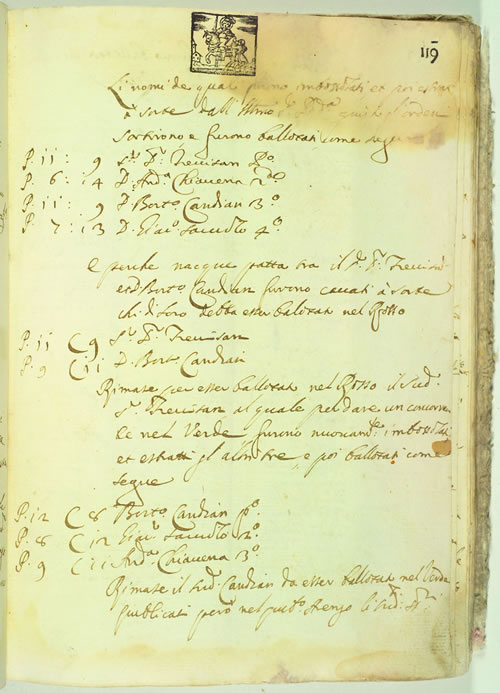 119
Li nomi de quali furono imbossolati et poi estrat
à sorte dall' Illmo
sortirono e furono ballotati come segue
P. 11 : 9 Sr. Dr. Trevisan Po.
P. 6 : 14 D. Anda. Chiavena 2do.
P. 11 : 9 D. Borto. Candian 3o.
P. 7 : 13 D. 4o.
E perche nacque patta tra il Sr. Dr. Trevisan
et D. Borto. Candian furono cavati à sorte
chi di loro debba esser ballotat nel Rosso
P. 11 C 9 Sr. Dr. Trevisan
P. 9 C 11 D. Borto. Candian
Rimase per esser ballotat nel Rosso il sud.
Sr. Trevisan al quale per dare un concorren
te nel Verde furono nuovamte. imbossolati
et estratti gl' altri tre, e poi ballotati come
segue
P. 12 C 8 Borto. Candian Po.
P. 8 C 12 2o.
P. 9 C 11 Anda. Chiavena 3o.
Rimase il sud. Candian da esser ballotat nel Verde
publicati però nel li sud. Sri.